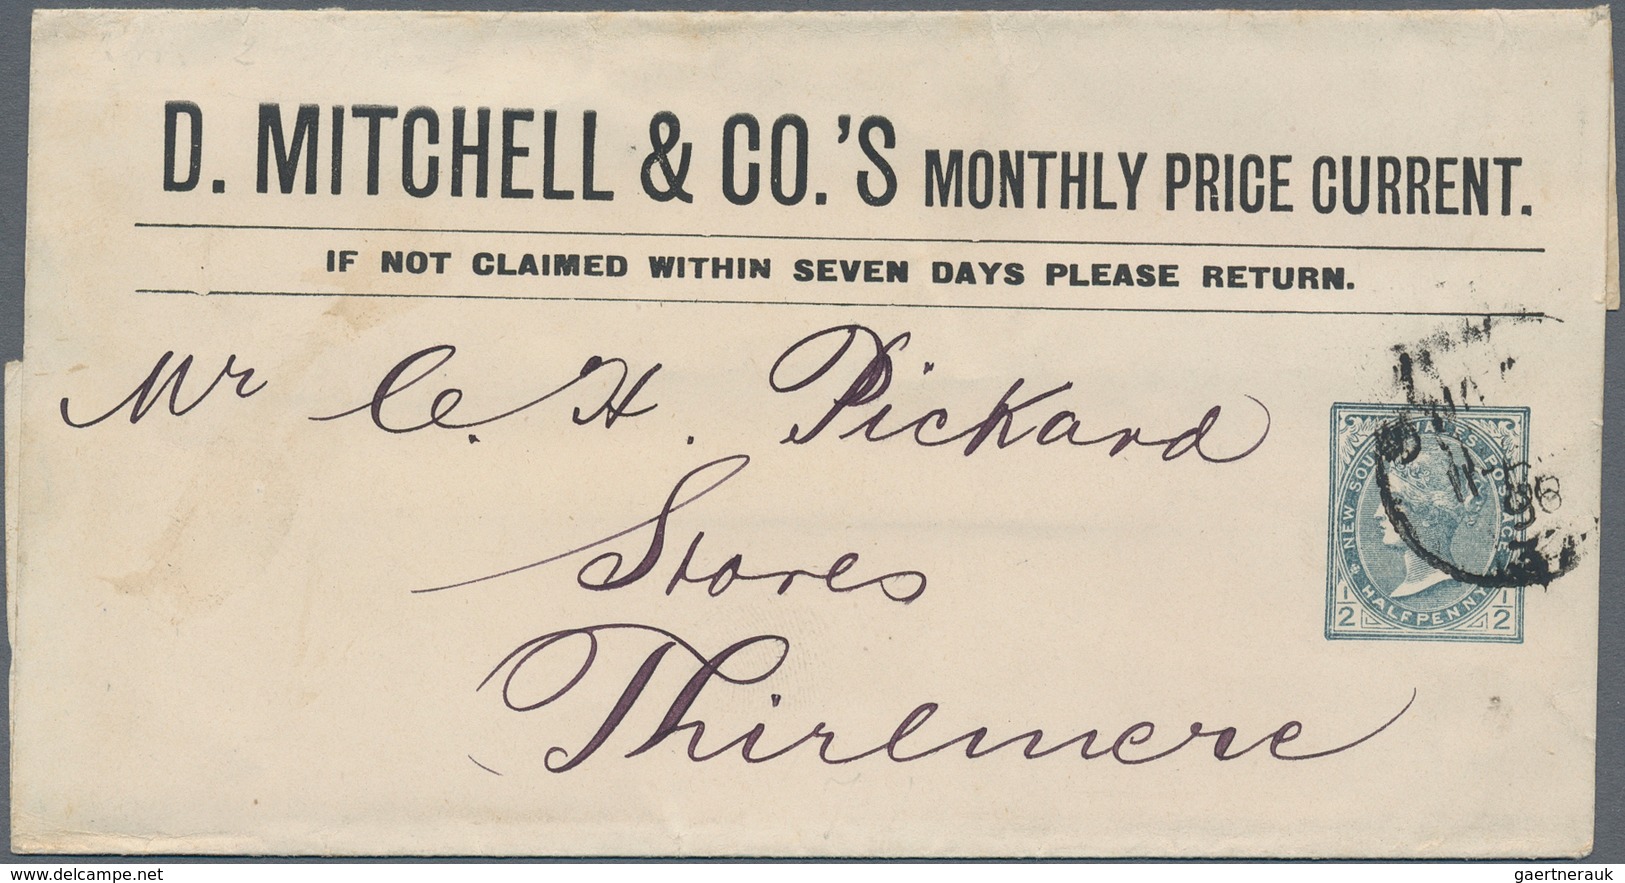 D. MITCHELL & CO.'S MONTHLY PRICE CURRENT.
IF NOT CLAIMED WITHIN SEVEN DAYS PLEASE RETURN.
Mr C. H. Pickard
Stores
Thirlmere
NEW SOUTH WALES POSTAGE
HALFPENNY
1/2 1/2
delcampe.net
gaertnerauk